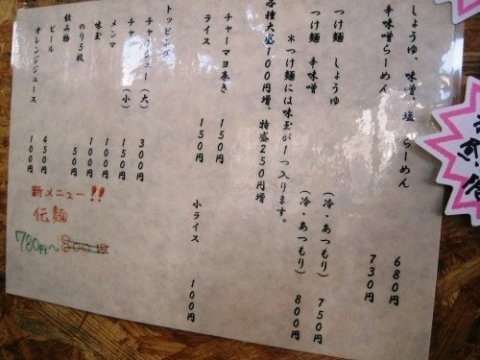 しょうゆ、味噌、塩 らーめん 680円
辛味噌らーめん 730円
つけ麺 しょうゆ (冷・あつもり) 750円
つけ麺 辛味噌 (冷・あつもり) 800円
※つけ麺には味玉が1つ入ります。
各種大盛100円増、特盛250円増
チャーマヨ巻き 150円
ライス 150円 小ライス 100円
トッピング
チャーシュー (大) 300円
チャ (小) 150円
メンマ 100円
味玉 100円
のり5枚 50円
飲み物
ビール 450円
オレンジジュース 100円
新メニュー!!
伝麺
780円~